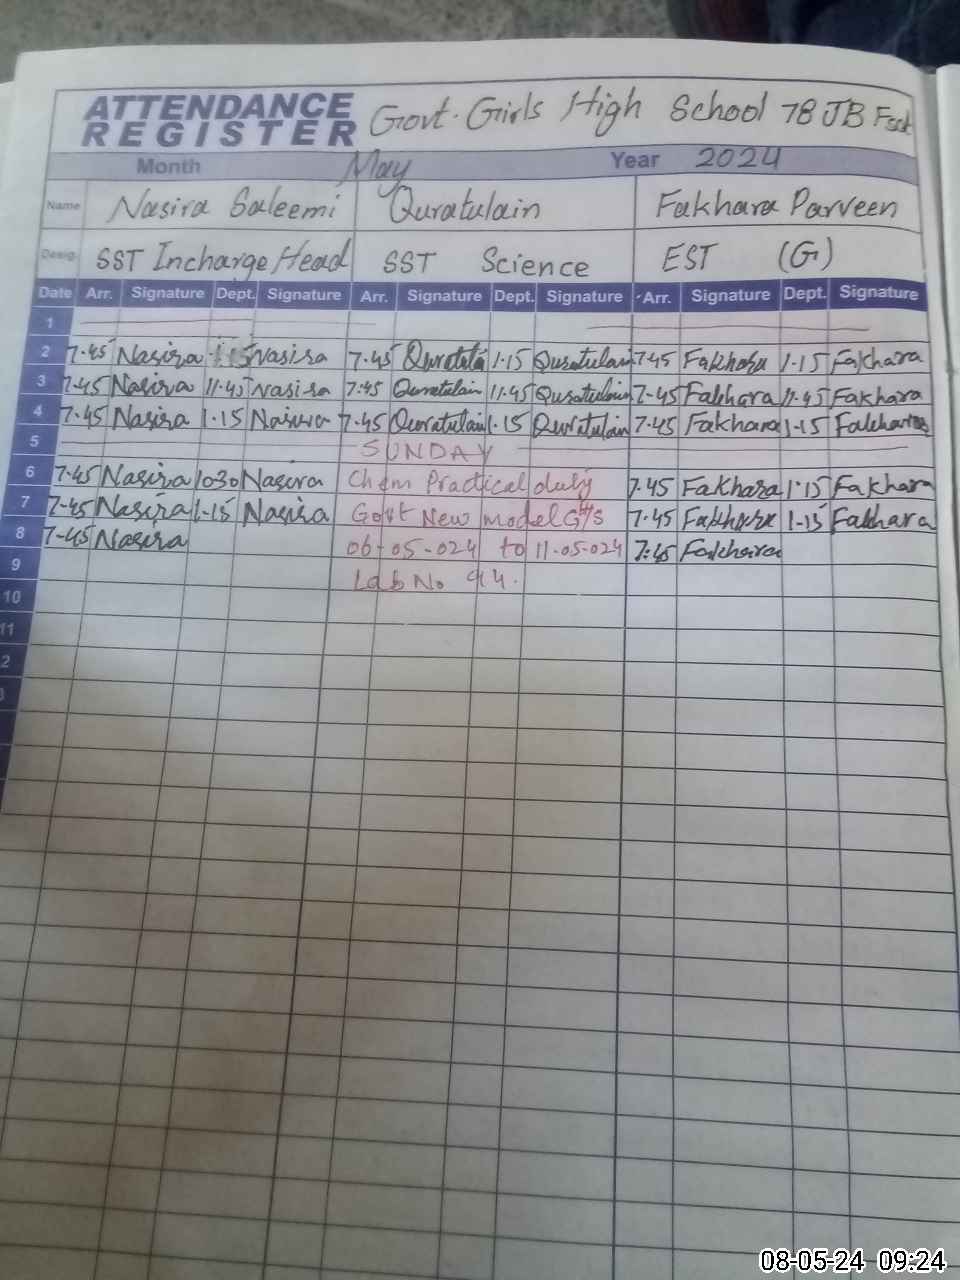 ATTENDANCE REGISTER Govt. Girls High School 78 JB Fsd
Month May Year 2024
Name Nasira Saleemi Quratulain Fakhara Parveen
Desig. SST Incharge Head SST Science EST (G)
Date Arr. Signature Dept. Signature Arr. Signature Dept. Signature Arr. Signature Dept. Signature
1
2 7.45 Nasira 1.15 Nasira 7.45 Quratulain 1.15 Quratulain 7.45 Fakhara 1.15 Fakhara
3 7.45 Nasira 11.45 Nasira 7.45 Quratulain 11.45 Quratulain 7.45 Fakhara 11.45 Fakhara
4 7.45 Nasira 1.15 Nasira 7.45 Quratulain 1.15 Quratulain 7.45 Fakhara 1.15 Fakhara
5 SUNDAY
6 7.45 Nasira 10.30 Nasira Chem Practical duty 7.45 Fakhara 1.15 Fakhara
7 7.45 Nasira 1.15 Nasira Govt New model GHS 7.45 Fakhara 1.15 Fakhara
8 7.45 Nasira 06-05-024 to 11-05-024 7:45 Fakhara
9 Lab No 94.
10
11
2
3
08-05-24 09:24